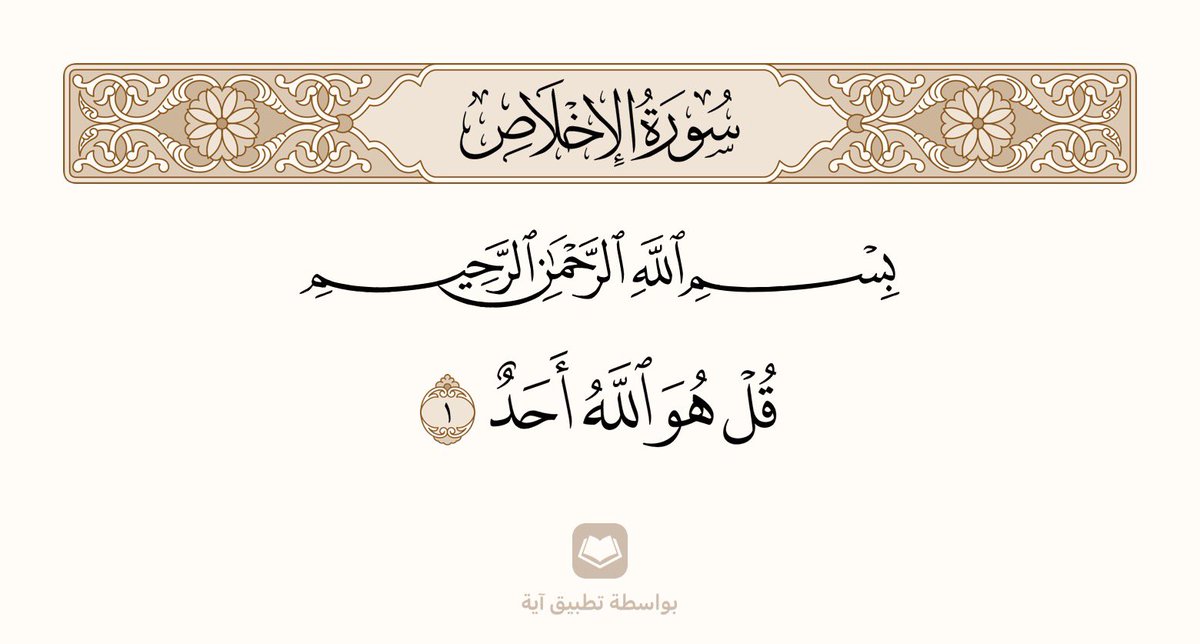 سُورَةُ الإِخْلَاصِ
بِسْمِ ٱللَّهِ ٱلرَّحْمَٰنِ ٱلرَّحِيمِ
قُلْ هُوَ ٱللَّهُ أَحَدٌ ١
بواسطة تطبيق آية